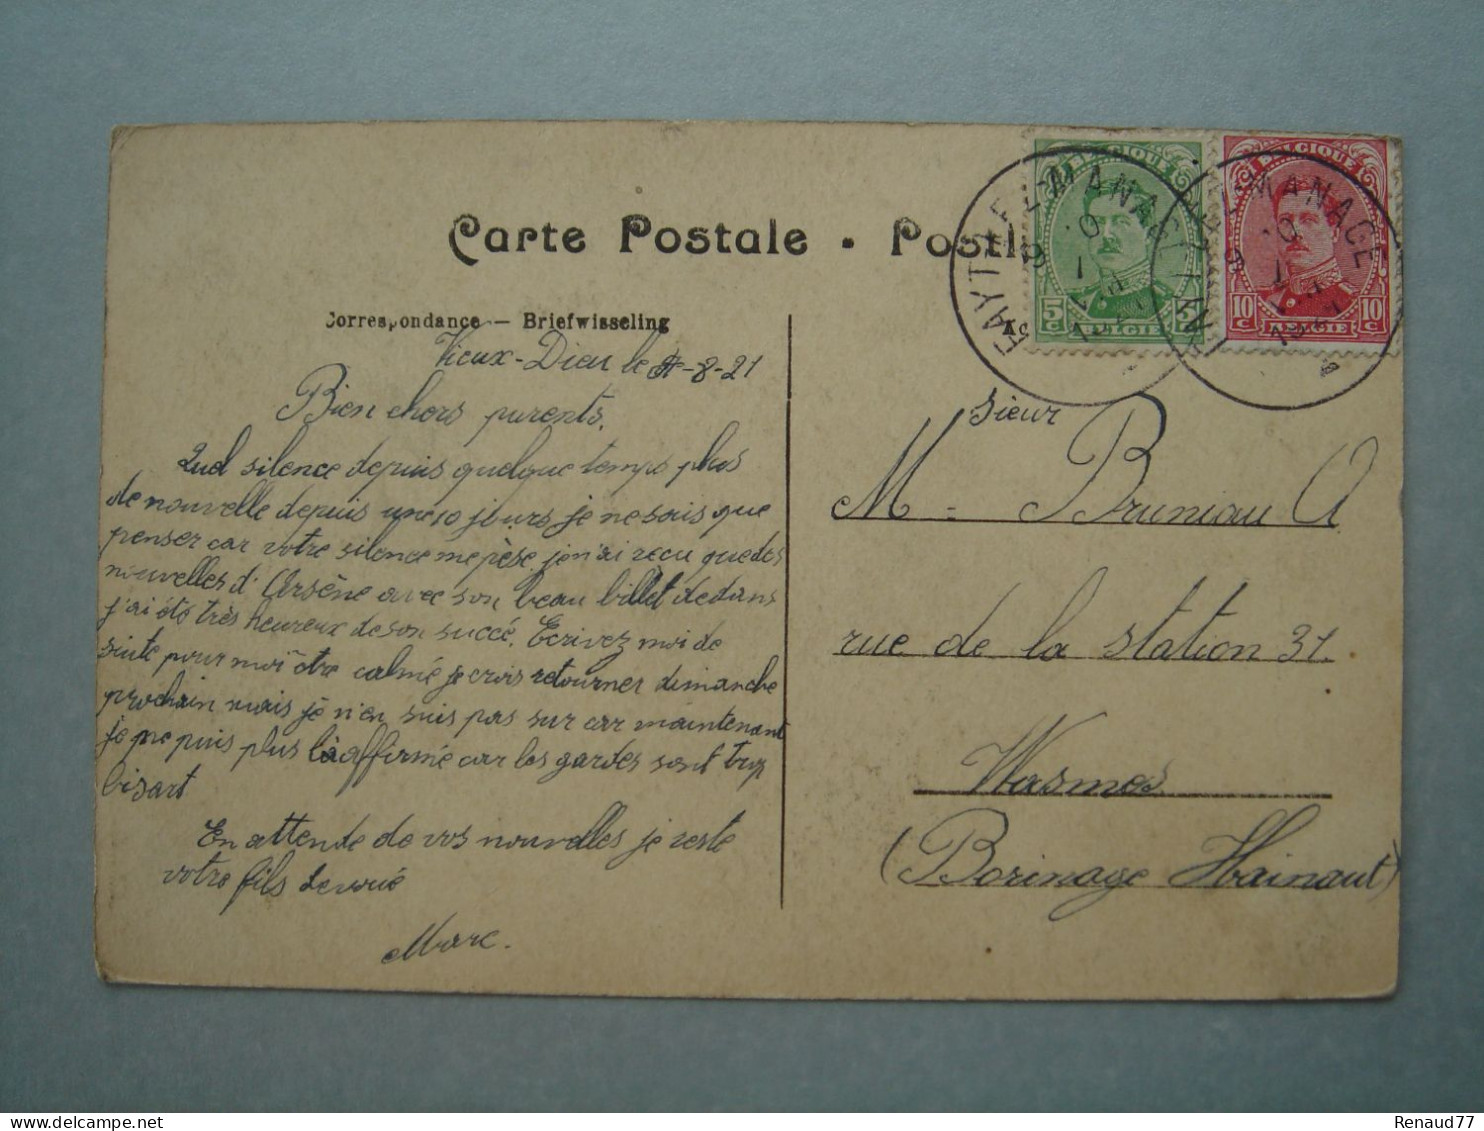 Carte Postale . Postk
Correspondance — Briefwisseling
Vieux-Dieu le -8-21
Bien chers parents.
Quel silence depuis quelque temps plus
de nouvelle depuis une 10 jours je ne sais que
penser car votre silence me pèse, je n'ai reçu que des
nouvelles d'Arsène avec son beau billet dedans
j'ai été très heureux de son succé. Ecrivez moi de
suite pour moi être calmé je crois retourner dimanche
prochain mais je n'en suis pas sur car maintenant
je ne puis plus l'affirmé car les gardes sont trop
bisart
En attende de vos nouvelles je reste
votre fils devoué
Marc.
BELGIQUE
5c 5c
BELGIË
BELGIQUE
10c 10c
BELGIË
FAYT-LEZ-MANAGE
FAYT-LEZ-MANAGE
sieur
M - Bruniau A
rue de la station 31.
Wasmes
(Borinage Hainaut)
Renaud77